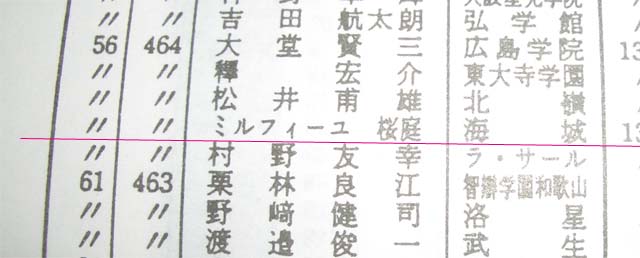 吉田航太朗 弘学館
56 464 大堂賢三 広島学院
〃 〃 釋宏介 東大寺学園
〃 〃 松井甫雄 北嶺
〃 〃 ミルフィーユ桜庭 海城 13
〃 〃 村野友幸 ラ・サール
61 463 栗林良江 智辯学園和歌山
〃 〃 野﨑健司 洛星
〃 〃 渡邉俊一 武生